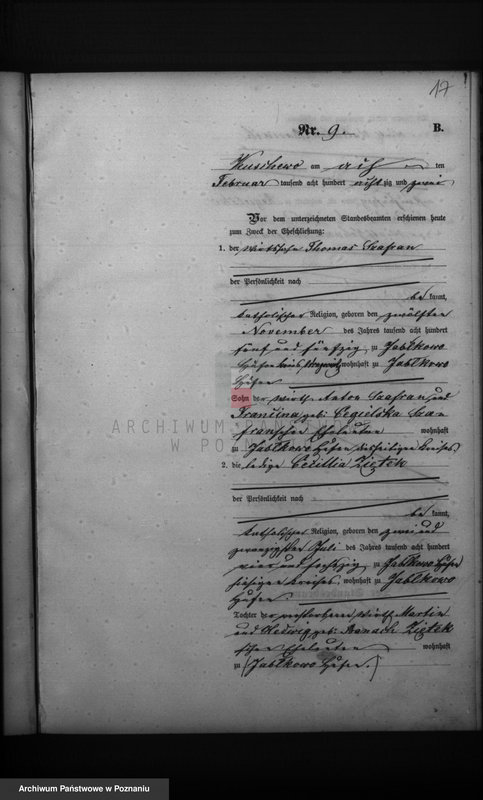 17
Nr. 9. B.
Kuschewo am acht ten
Februar tausend acht hundert achtzig und zwei
Vor dem unterzeichneten Standesbeamten erschienen heute
zum Zweck der Eheschließung:
1. der Wirthssohn Thomas Szafran
der Persönlichkeit nach
be kannt,
katholischer Religion, geboren den zwölften
November des Jahres tausend acht hundert
fünf und fünfzig zu Jabłkowo
Hufen wohnhaft zu Jabłkowo
Hufen
Sohn der Wirth Anton Szafran und
Franciina geb: Cegielska Szaf
franschen Eheleuten wohnhaft
zu Jabłkowo Hufen diesseitigen Kreises
2. die ledige Cecillia Ziętek
der Persönlichkeit nach
be kannt,
katholischer Religion, geboren den zwei und
zwanzigsten Juli des Jahres tausend acht hundert
vier und sechszig zu Jabłkowo Hufen
hiesigen Kreises, wohnhaft zu Jabłkowo
Hufen.
Tochter der verstorbenen Wirth Martin
und Hedwig geb: Banach Ziętek
schen Eheleuten wohnhaft
zu (Jabłkowo Hufen.)
ARCHIWUM PAŃSTWOWE
W POZNANIU
Archiwum Państwowe w Poznaniu